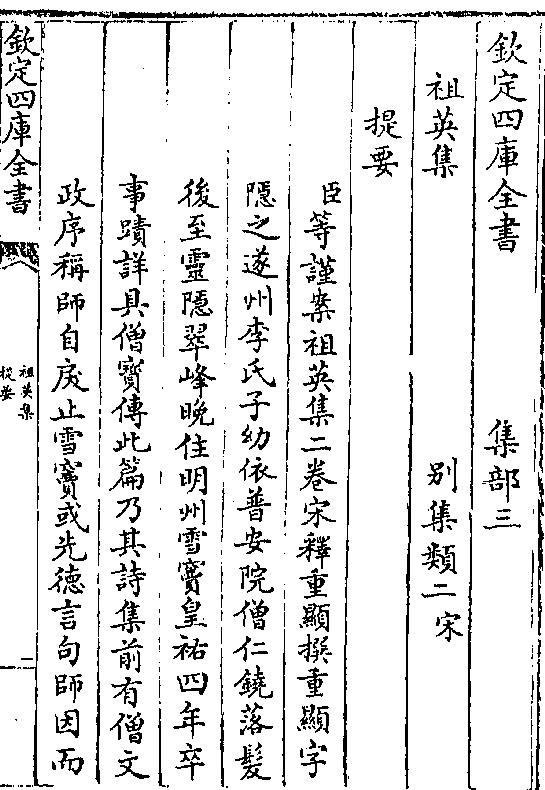 欽定四庫全書　集部三
祖英集　別集類二宋
提要
臣等謹案祖英集二卷宋釋重顯撰重顯字
隱之遂州李氏子幼依普安院僧仁銑落髮
後至靈隱翠峰晚住明州雪竇皇祐四年卒
事蹟詳具僧寶傳此篇乃其詩集前有僧文
政序稱師自戾止雪竇或先德言句師因而
欽定四庫全書
祖英集
提要
一